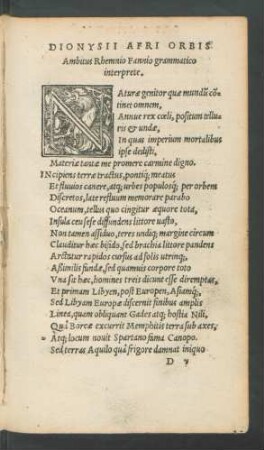 DIONYSII AFRI ORBIS
Ambitus Rhemnio Fannio grammatico
interprete.
NAturæ genitor quæ mundũ cõ
tinet omnem,
Annue rex cœli, positum telluris
& undæ,
In quas imperium mortalibus
ipse dedisti,
Materiæ tantæ me promere carmine digno.
INcipiens terræ tractus, pontiq; meatus
Et fluuios canere, atq; urbes populosq; per orbem
Discretos, late refluum memorare parabo
Oceanum, tellus quo cingitur æquore tota,
Insula ceu sese diffundens littore uasto,
Non tamen assiduo, teres undiq; margine circum
Clauditur hæc bifido, sed brachia littore pandens
Arctatur rapidos cursus ad solis utrinq;,
Assimilis fundæ, sed quamuis corpore toto
Vna sit hæc, homines treis dicunt esse diremptas,
Et primam Libyen, post Europen, Asiamq;,
Sed Libyam Europæ discernit finibus amplis
Linea, quam obliquant Gades atq; hostia Nili,
Quâ Boreæ excurrit Memphitis terra sub axes,
Atq; locum nouit Spartano fama Canopo.
Sed terras Aquilo quâ frigore damnat iniquo
D